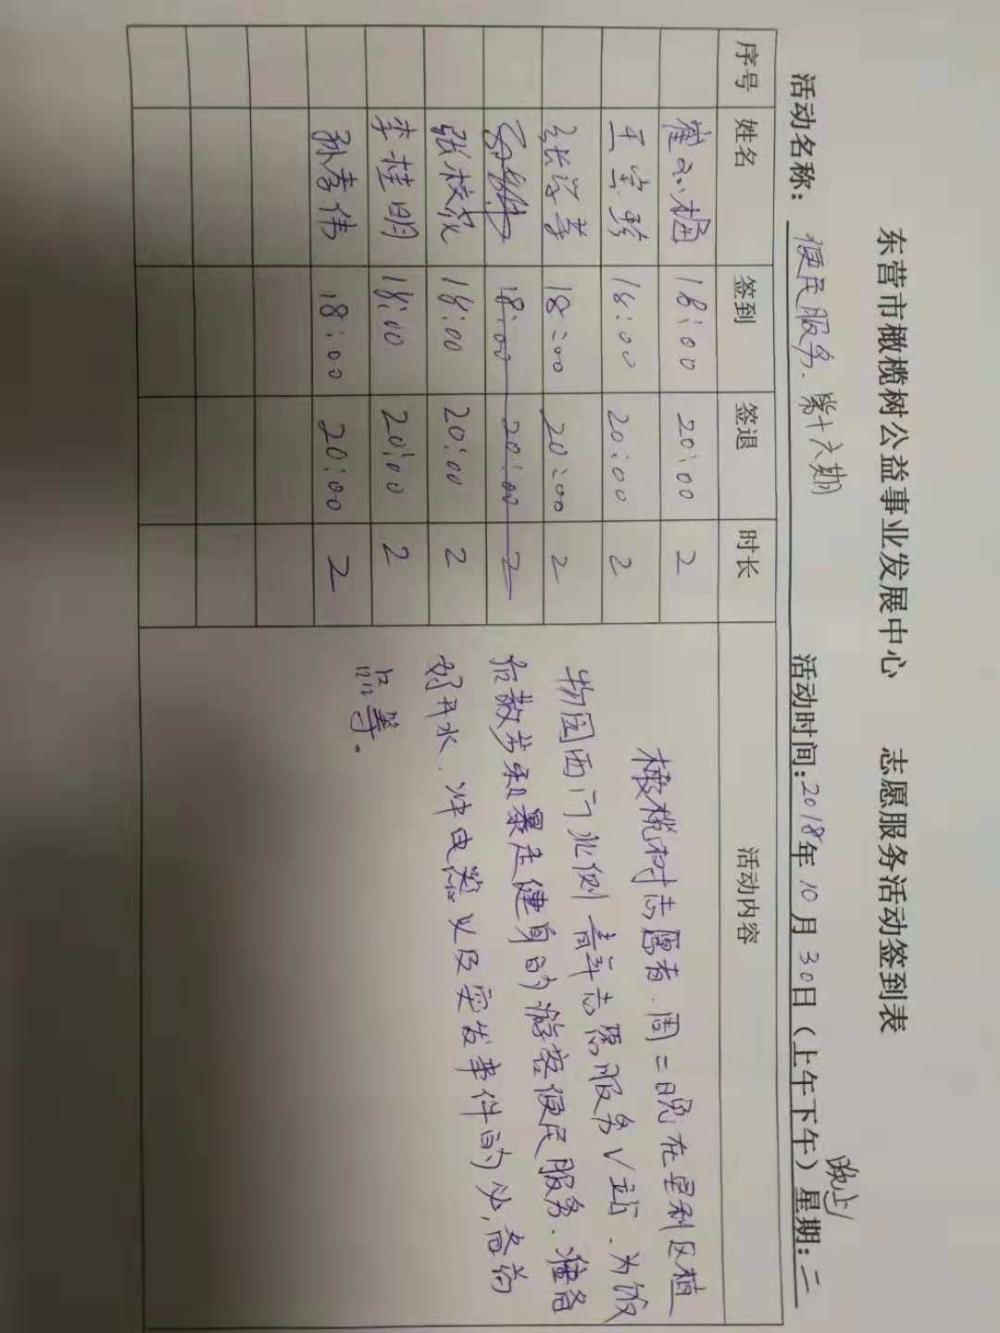 东营市橄榄树公益事业发展中心 志愿服务活动签到表
活动名称：便民服务.第十六期 活动时间:2018年10月30日（上午下午）晚上 星期:二
序号 姓名 签到 签退 时长 活动内容
崔 18:00 20:00 2
王宝珍 18:00 20:00 2
张 18:00 20:00 2
18:00 20:00 2
张校 18:00 20:00 2
李桂明 18:00 20:00 2
孙孝伟 18:00 20:00 2
橄榄树志愿者.周二晚在垦利区植
物园西门北侧青年志愿服务V站.为饭
后散步和暴走健身的游客便民服务.准备
好开水.冲电器以及突发事件的必备药
品等。